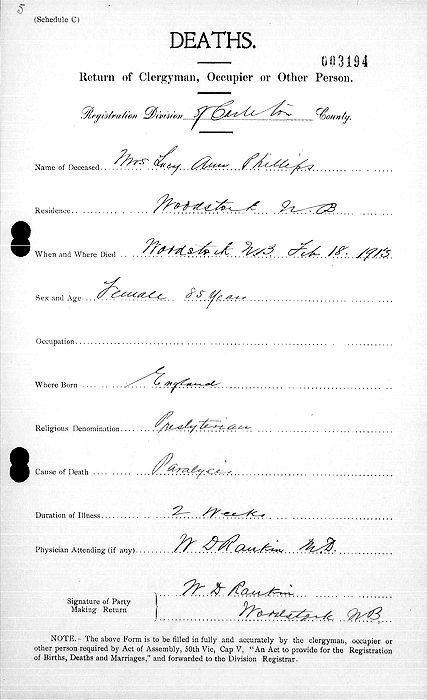 5
(Schedule C)
DEATHS.
003194
Return of Clergyman, Occupier or Other Person.
Registration Division of Carleton County.
Name of Deceased Mrs Lucy Ann Phillips
Residence Woodstock N. B
When and Where Died Woodstock NB Feb 18. 1913
Sex and Age Female 85 Years
Occupation
Where Born England
Religious Denomination Presbyterian
Cause of Death Paralysis
Duration of Illness 2 Weeks
Physician Attending (if any) W D Rankin M.D.
Signature of Party Making Return W D Rankin
Woodstock NB
NOTE.- The above Form is to be filled in fully and accurately by the clergyman, occupier or
other person required by Act of Assembly, 50th Vic, Cap V, "An Act to provide for the Registration
of Births, Deaths and Marriages," and forwarded to the Division Registrar.